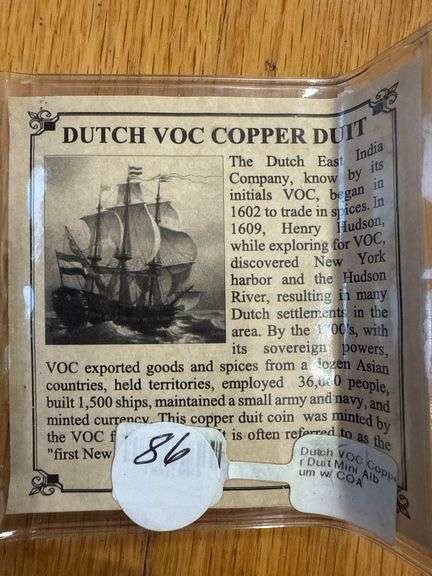 DUTCH VOC COPPER DUIT
The Dutch East India
Company, know by its
initials VOC, began in
1602 to trade in spices. In
1609, Henry Hudson,
while exploring for VOC,
discovered New York
harbor and the Hudson
River, resulting in many
Dutch settlements in the
area. By the 1700's, with
its sovereign powers,
VOC exported goods and spices from a dozen Asian
countries, held territories, employed 36,000 people,
built 1,500 ships, maintained a small army and navy, and
minted currency. This copper duit coin was minted by
the VOC is often referred to as the
"first New
86
Dutch VOC Coppe
r Duit Mini Alb
um w/ COA